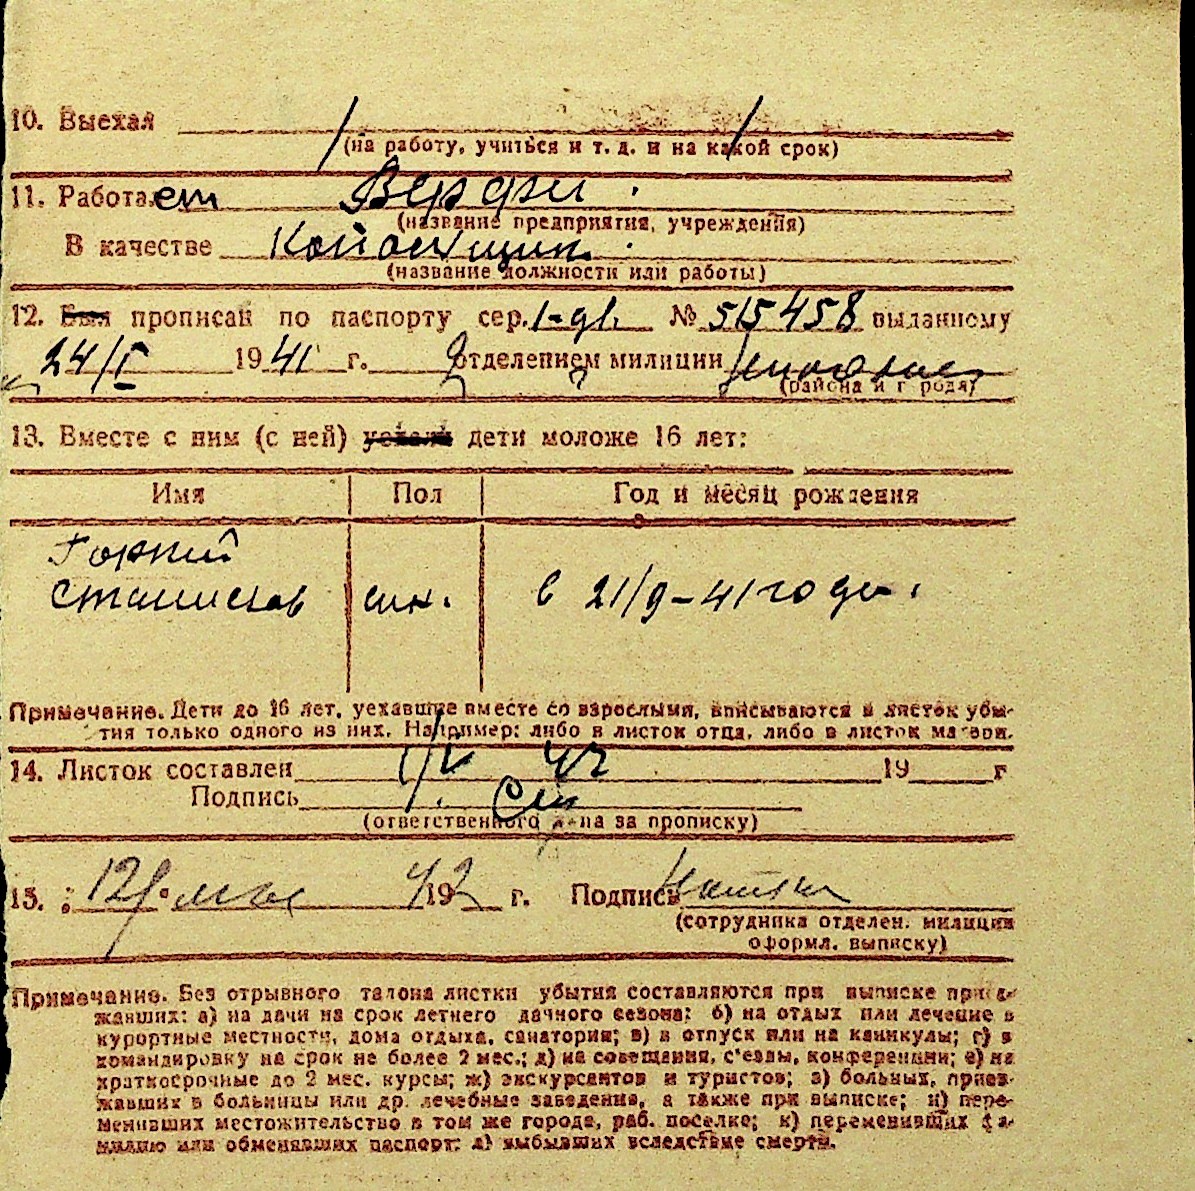 10. Выехал
(на работу, учиться и т. д. и на какой срок)
11. Работает Верфи.
(название предприятия, учреждения)
В качестве
(название должности или работы)
12. Был прописан по паспорту сер. № 515458 выданному
24/I 1941 г. отделением милиции
(района и города)
13. Вместе с ним (с ней) уехали дети моложе 16 лет:
Имя Пол Год и месяц рождения
Горкий
Станислав сын. в 21/9-41 году.
Примечание. Дети до 16 лет, уехавшие вместе со взрослыми, вписываются в листок убы-
тия только одного из них. Например: либо в листок отца, либо в листок матери.
14. Листок составлен 1/V 42 19 г
Подпись
(ответственного лица за прописку)
15. " 12 " мая 1942 г. Подпись
(сотрудника отделен. милиции
оформл. выписку)
Примечание. Без отрывного талона листки убытия составляются при выписке приез-
жавших: а) на дачи на срок летнего дачного сезона; б) на отдых или лечение в
курортные местности, дома отдыха, санатории; в) в отпуск или на каникулы; г) в
командировку на срок не более 2 мес.; д) на совещания, с'езды, конференции; е) на
краткосрочные до 2 мес. курсы; ж) экскурсантов и туристов; з) больных, приез-
жавших в больницы или др. лечебные заведения, а также при выписке; и) пере-
менивших местожительство в том же городе, раб. поселке; к) переменивших фа-
милию или обменявших паспорт; л) выбывших вследствие смерти.